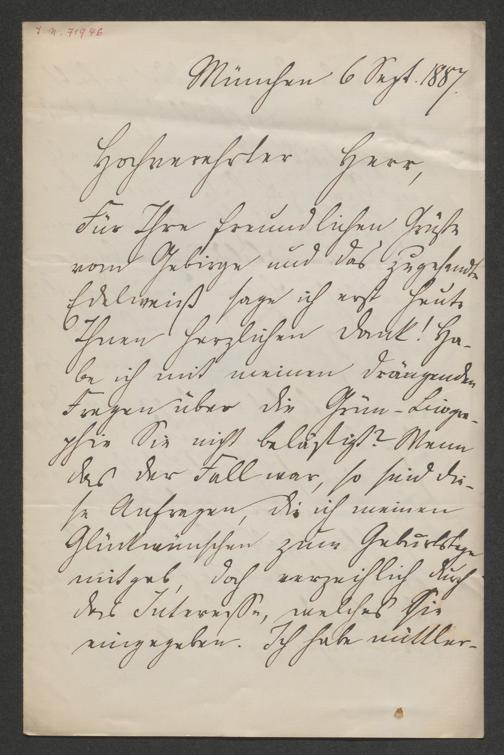 I. N. 71946
München 6 Sept. 1887.
Hochverehrter Herr,
Für Ihre freundlichen Grüße
vom Gebirge und das zugesandte
Edelweiß sage ich erst heute
Ihnen herzlichen Dank! Ha-
be ich mit meinen drängenden
Fragen über die Grün-Biogra-
phie Sie nicht belästigt? Wenn
das der Fall war, so sind die-
se Anfragen, die ich meinen
Glückwünschen zum Geburtstage
mitgab, doch verzeihlich durch
das Interesse, welches sie
eingegeben. Ich habe mittler-